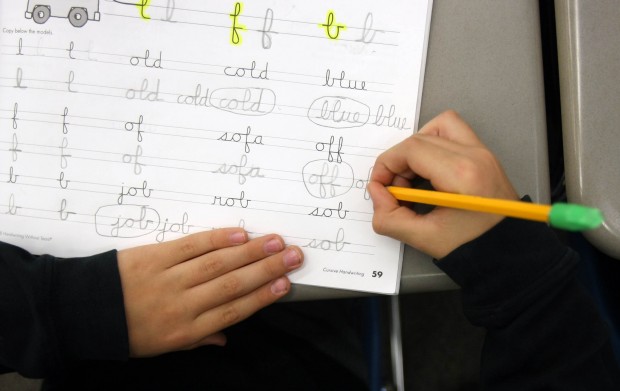 l l f f b b
Copy below the models.
l l old cold blue
l l old cold cold blue blue
f f of sofa off
f f of sofa off of
b b job rob sob
b b job job sob
Cursive Handwriting 59